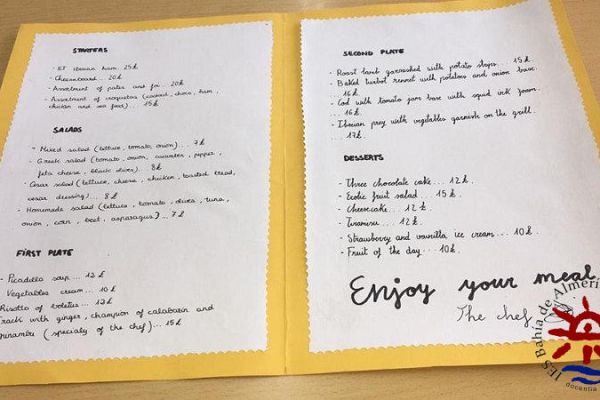 STARTERS
- 5J iberian ham... 25£
- Cheeseboard... 20£
- Assortment of pates and foi... 20£
- Assortment of croquetas (caviard, choco, ham,
chicken and sea food)... 15£
SALADS
- Mixed salad (lettuce, tomato, onion)... 7£
- Greek salad (tomato, onion, cucumber, pepper,
feta cheese, black olives). 8£
- Cesar salad (lettuce, cheese, chicken, toasted bread,
cesar dressing)... 8£
- Homemade salad (lettuce, tomato, olives, tuna,
onion, corn, beet, asparagus)... 7£
FIRST PLATE
- Picadillo soup... 12£
Vegetables cream... 10£
Risotto of boletus... 12£
with ginger, champion of calabacin and
(specialy of the chef)... 15£
SECOND PLATE
- Roast lamb garnished with potato strops... 15£.
- Baked turbot rennet with potatoes and onion base.
... 16£.
- Cod with tomato jam base with squid ink foam.
... 16£.
- Iberian prey with vegetables garnish on the grill.
... 17£.
DESSERTS
- Three chocolate cake... 12£.
- Exotic fruit salad... 15£.
- Cheesecake... 12£.
- Tiramisu... 12£.
- Strawberry and vainilla ice cream... 10£.
- Fruit of the day... 10£.
Enjoy your meal
The chef
IES Bahia de Almería
docentia